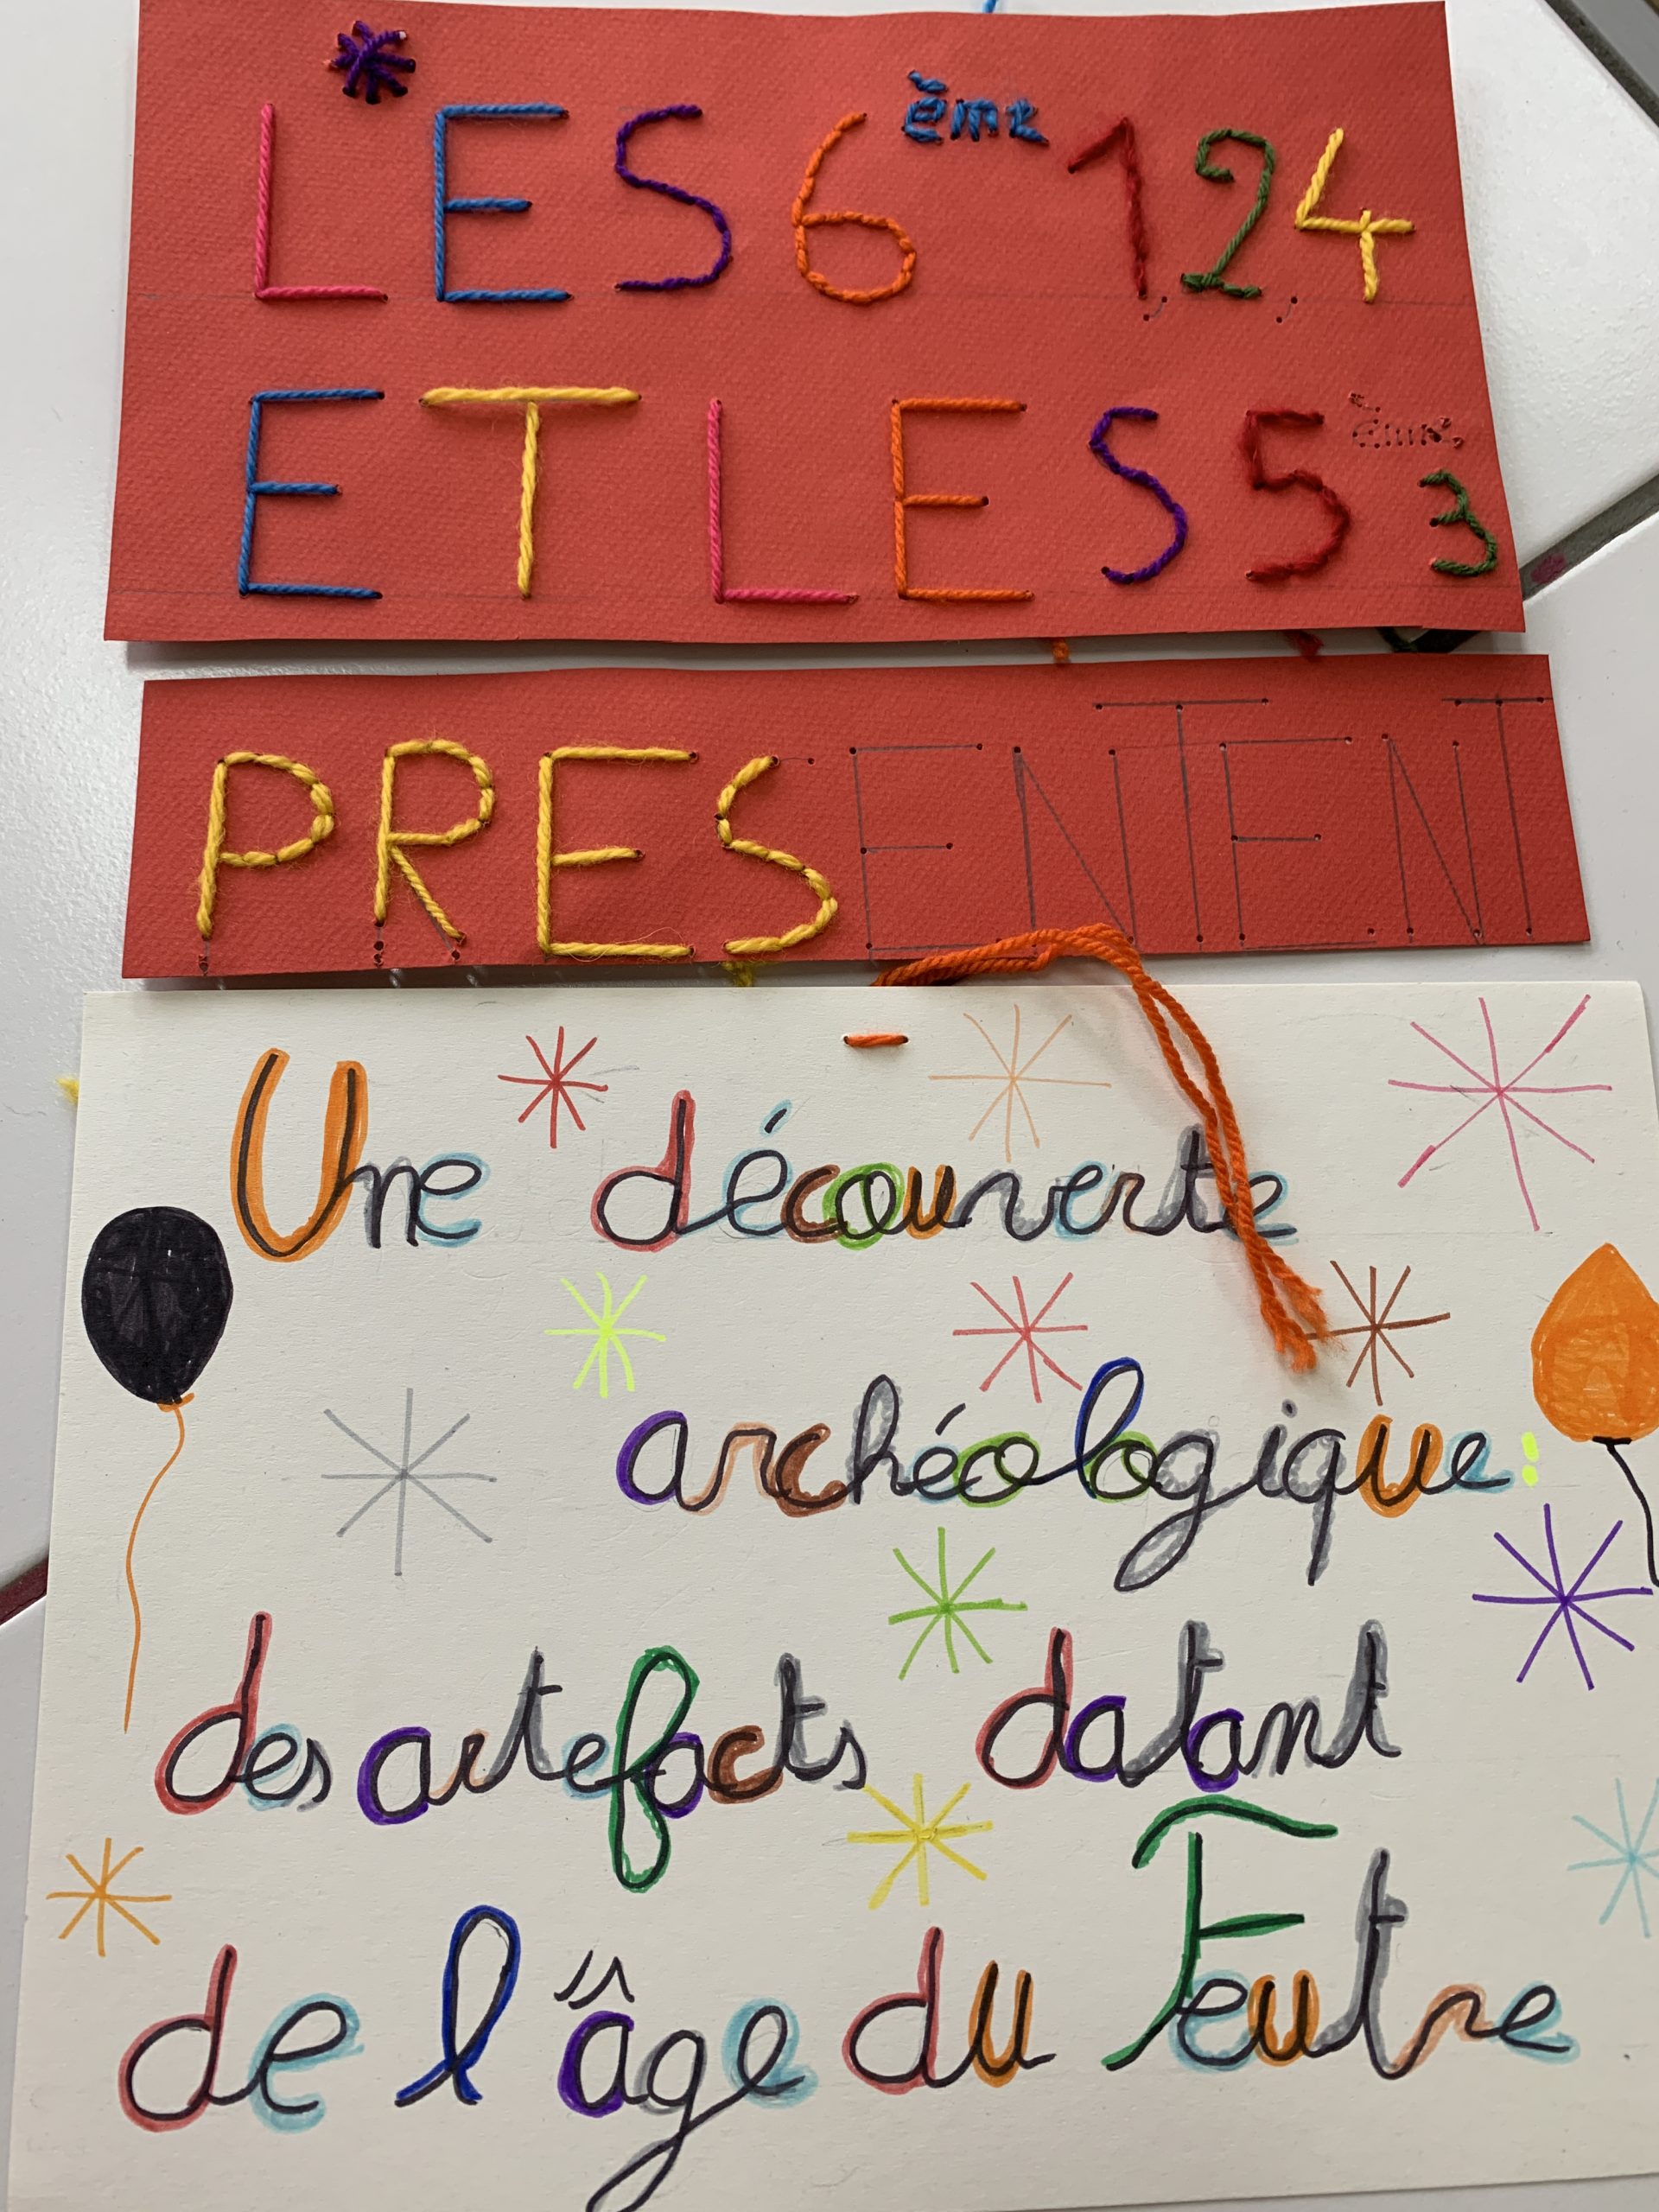 LES 6ème 1, 2, 4
ET LES 5ème 3
PRESENTENT
Une découverte
archéologique:
des artefacts datant
de l'âge du Feutre